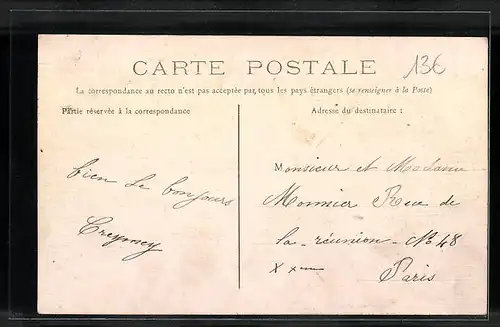 CARTE POSTALE
13€
La correspondance au recto n'est pas acceptée par tous les pays étrangers (se renseigner à la Poste)
Partie réservée à la correspondance
Adresse du destinataire :
bien le bonjours
Monsieur et Madame
Monnier Rue de
la réunion No 48
Xxème
Paris